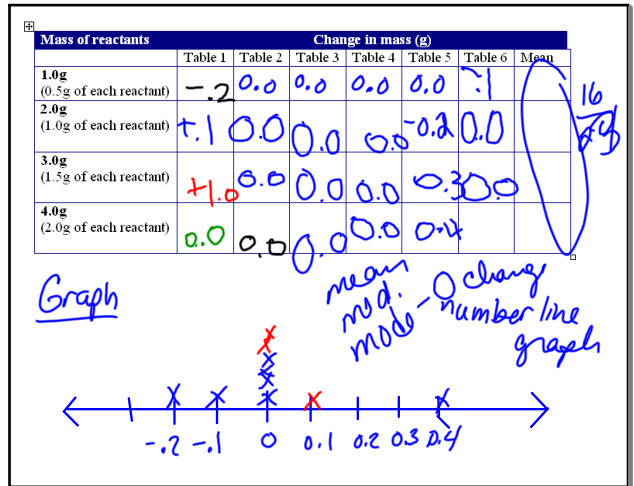 Mass of reactants Change in mass (g)
Table 1 Table 2 Table 3 Table 4 Table 5 Table 6 Mean
1.0g
(0.5g of each reactant) -.2 0.0 0.0 0.0 0.0 -.1
2.0g
(1.0g of each reactant) +.1 0.0 0.0 0.0 -0.2 0.0
3.0g
(1.5g of each reactant) +1.0 0.0 0.0 0.0 0.3 0.0
4.0g
(2.0g of each reactant) 0.0 0.0 0.0 0.0 0.4
16
Graph
mean
mod.
mode - 0 change
number line
graph
-.2 -.1 0 0.1 0.2 0.3 0.4